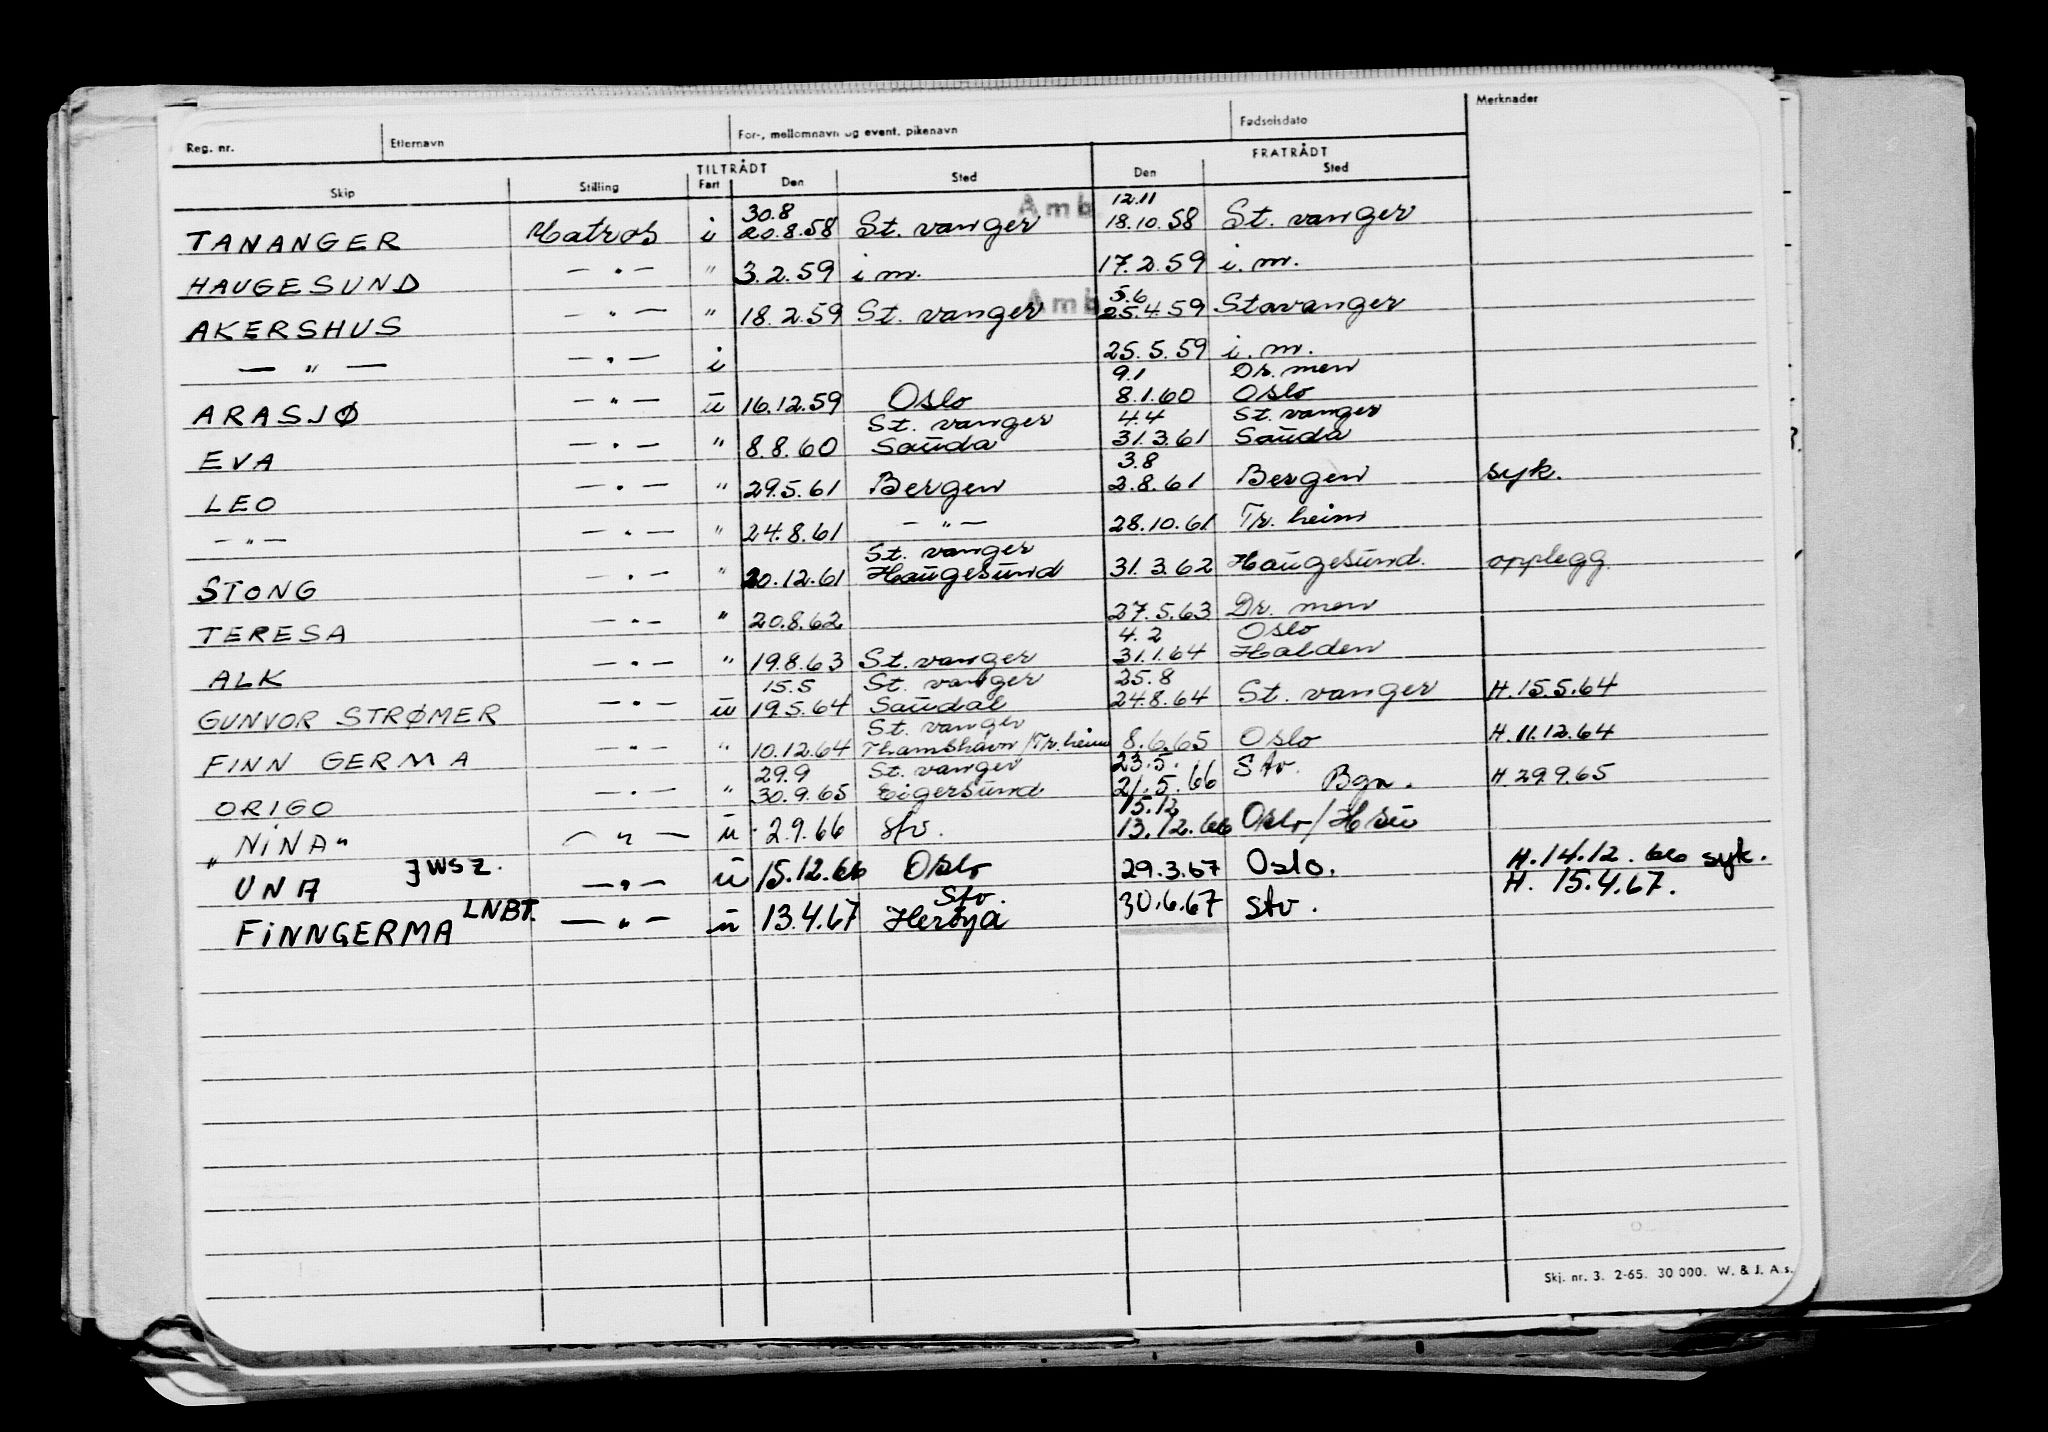 Reg. nr. Etternavn For-, mellomnavn og event. pikenavn Fødselsdato Merknader
TILTRÅDT FRATRÅDT
Skip Stilling Fart Den Sted Den Sted
30.8 Amb. 12.11
TANANGER Matros i 20.8.58 St. vanger 18.10.58 St. vanger
HAUGESUND — " — " 3.2.59 i m. 17.2.59 i. m.
Amb. 5.6
AKERSHUS — " — " 18.2.59 St. vanger 25.4.59 Stavanger
— " — — " — i 25.5.59 i. m.
9.1 Dr. men
ARASJØ — " — ū 16.12.59 Oslo 8.1.60 Oslo
St. vanger 4.4 St. vanger
EVA — " — " 8.8.60 Saūda 31.3.61 Saūda
3.8
LEO — " — " 29.5.61 Bergen 2.8.61 Bergen syk.
— " — — " — " 24.8.61 — " — 28.10.61 Tr. heim
St. vanger
STONG — " — " 20.12.61 Haūgesūnd 31.3.62 Haūgesūnd. opplegg.
TERESA — " — " 20.8.62 27.5.63 Dr. men
4.2 Oslo
ALK — " — " 19.8.63 St. vanger 31.1.64 Halden
15.5 St. vanger 25.8
GUNVOR STRØMER — " — ū 19.5.64 Saūdal 24.8.64 St. vanger H. 15.5.64
St. vanger
FINN GERMA — " — " 10.12.64 Thamshavn/Tr.heim 8.6.65 Oslo H. 11.12.64
29.9 St. vanger 23.5. Stv.
ORIGO — " — " 30.9.65 Eigersūnd 21.5.66 Bgn. H 29.9.65
15.12
„NiNA" — " — ū 2.9.66 Stv. 13.12.66 Oslo/Hsū
UNA JWSZ. — " — ū 15.12.66 Oslo 29.3.67 Oslo. H. 14.12.66 syk.
Stv. H. 15.4.67.
FiNNGERMA LNBT. — " — ū 13.4.67 Herøya 30.6.67 Stv.
Skj. nr. 3. 2-65. 30 000. W. & J. A.s.